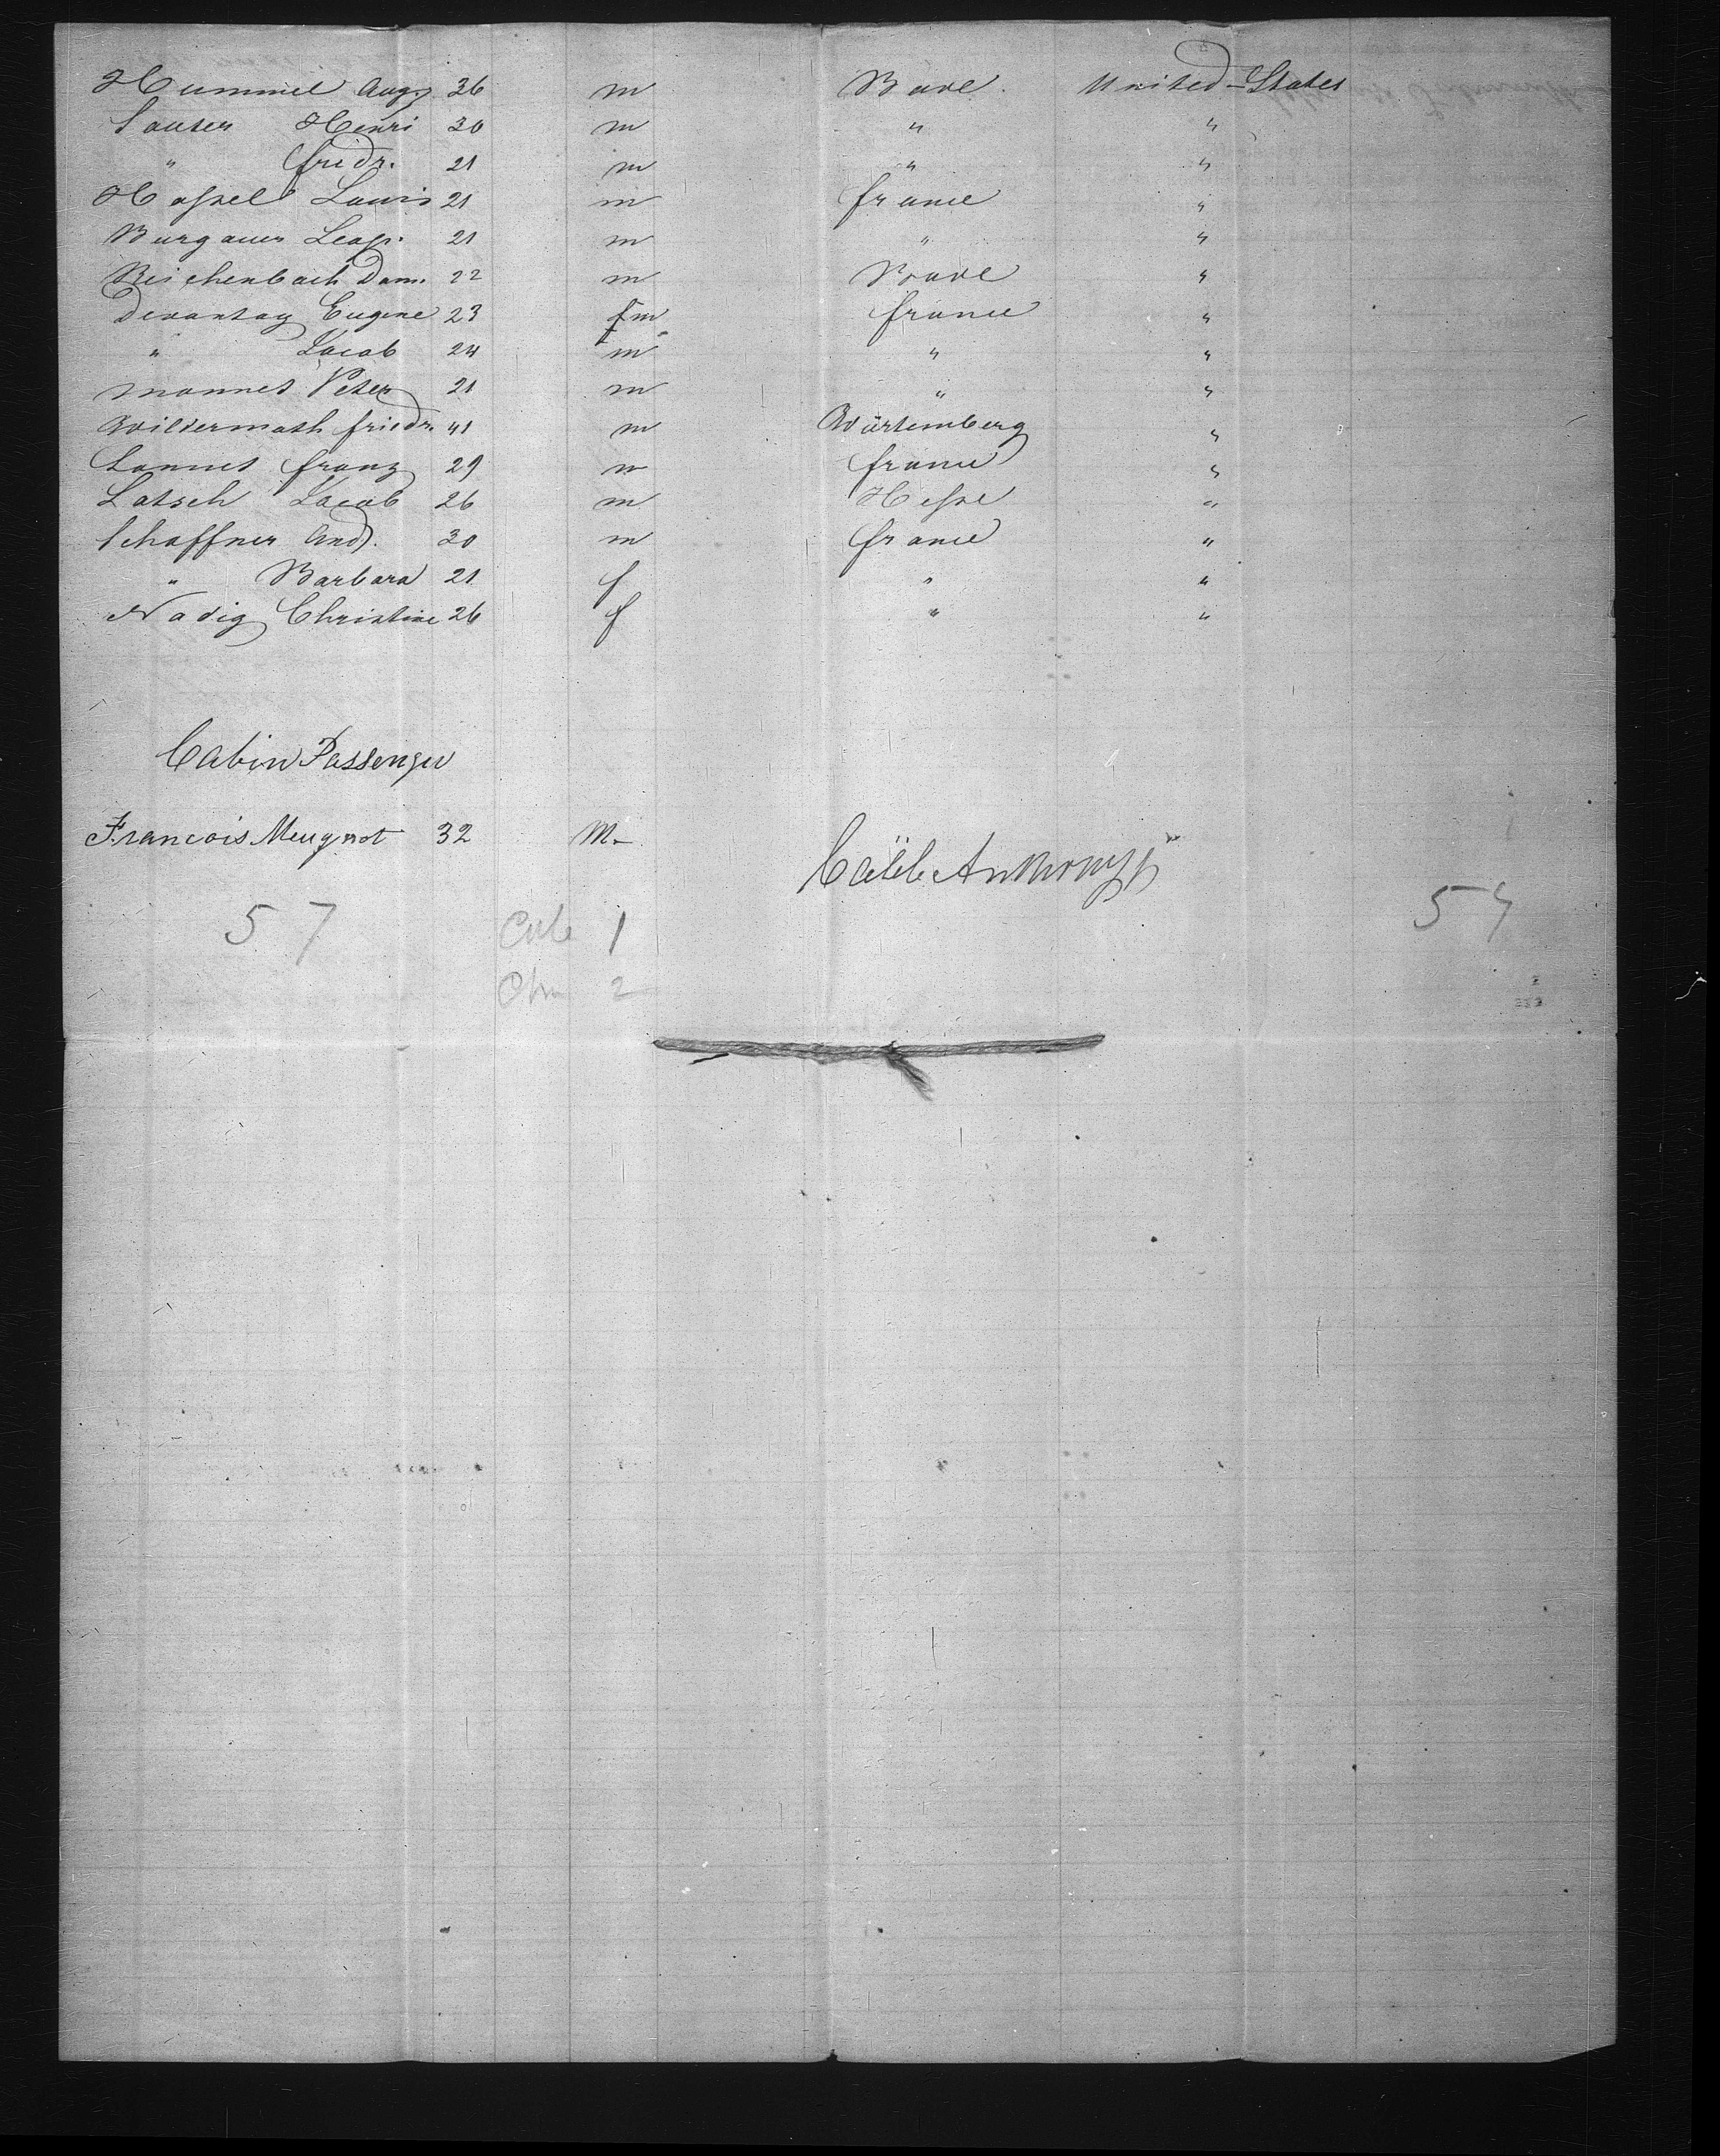 Hummel Aug. 36 m Bade United-States
Sauter Henri 30 m " "
" fridr. 21 m " "
Hassel Louis 21 m france "
Burgauer Leop. 21 m " "
Reichenbach Dam. 22 m Bade "
Devantay Eugene 23 fm france "
" Jacob 24 m " "
Mannet Peter 21 m " "
Wildermath friedr. 41 m Würtemberg "
Lannet franz 29 m france "
Latsch Jacob 26 m Hesse "
Schaffner And. 30 m france "
" Barbara 21 f " "
Nadig Christine 26 f " "
Cabin Passenger
Francois Meugnot 32 M.
Caleb Anthony Jr
57 1 57
2